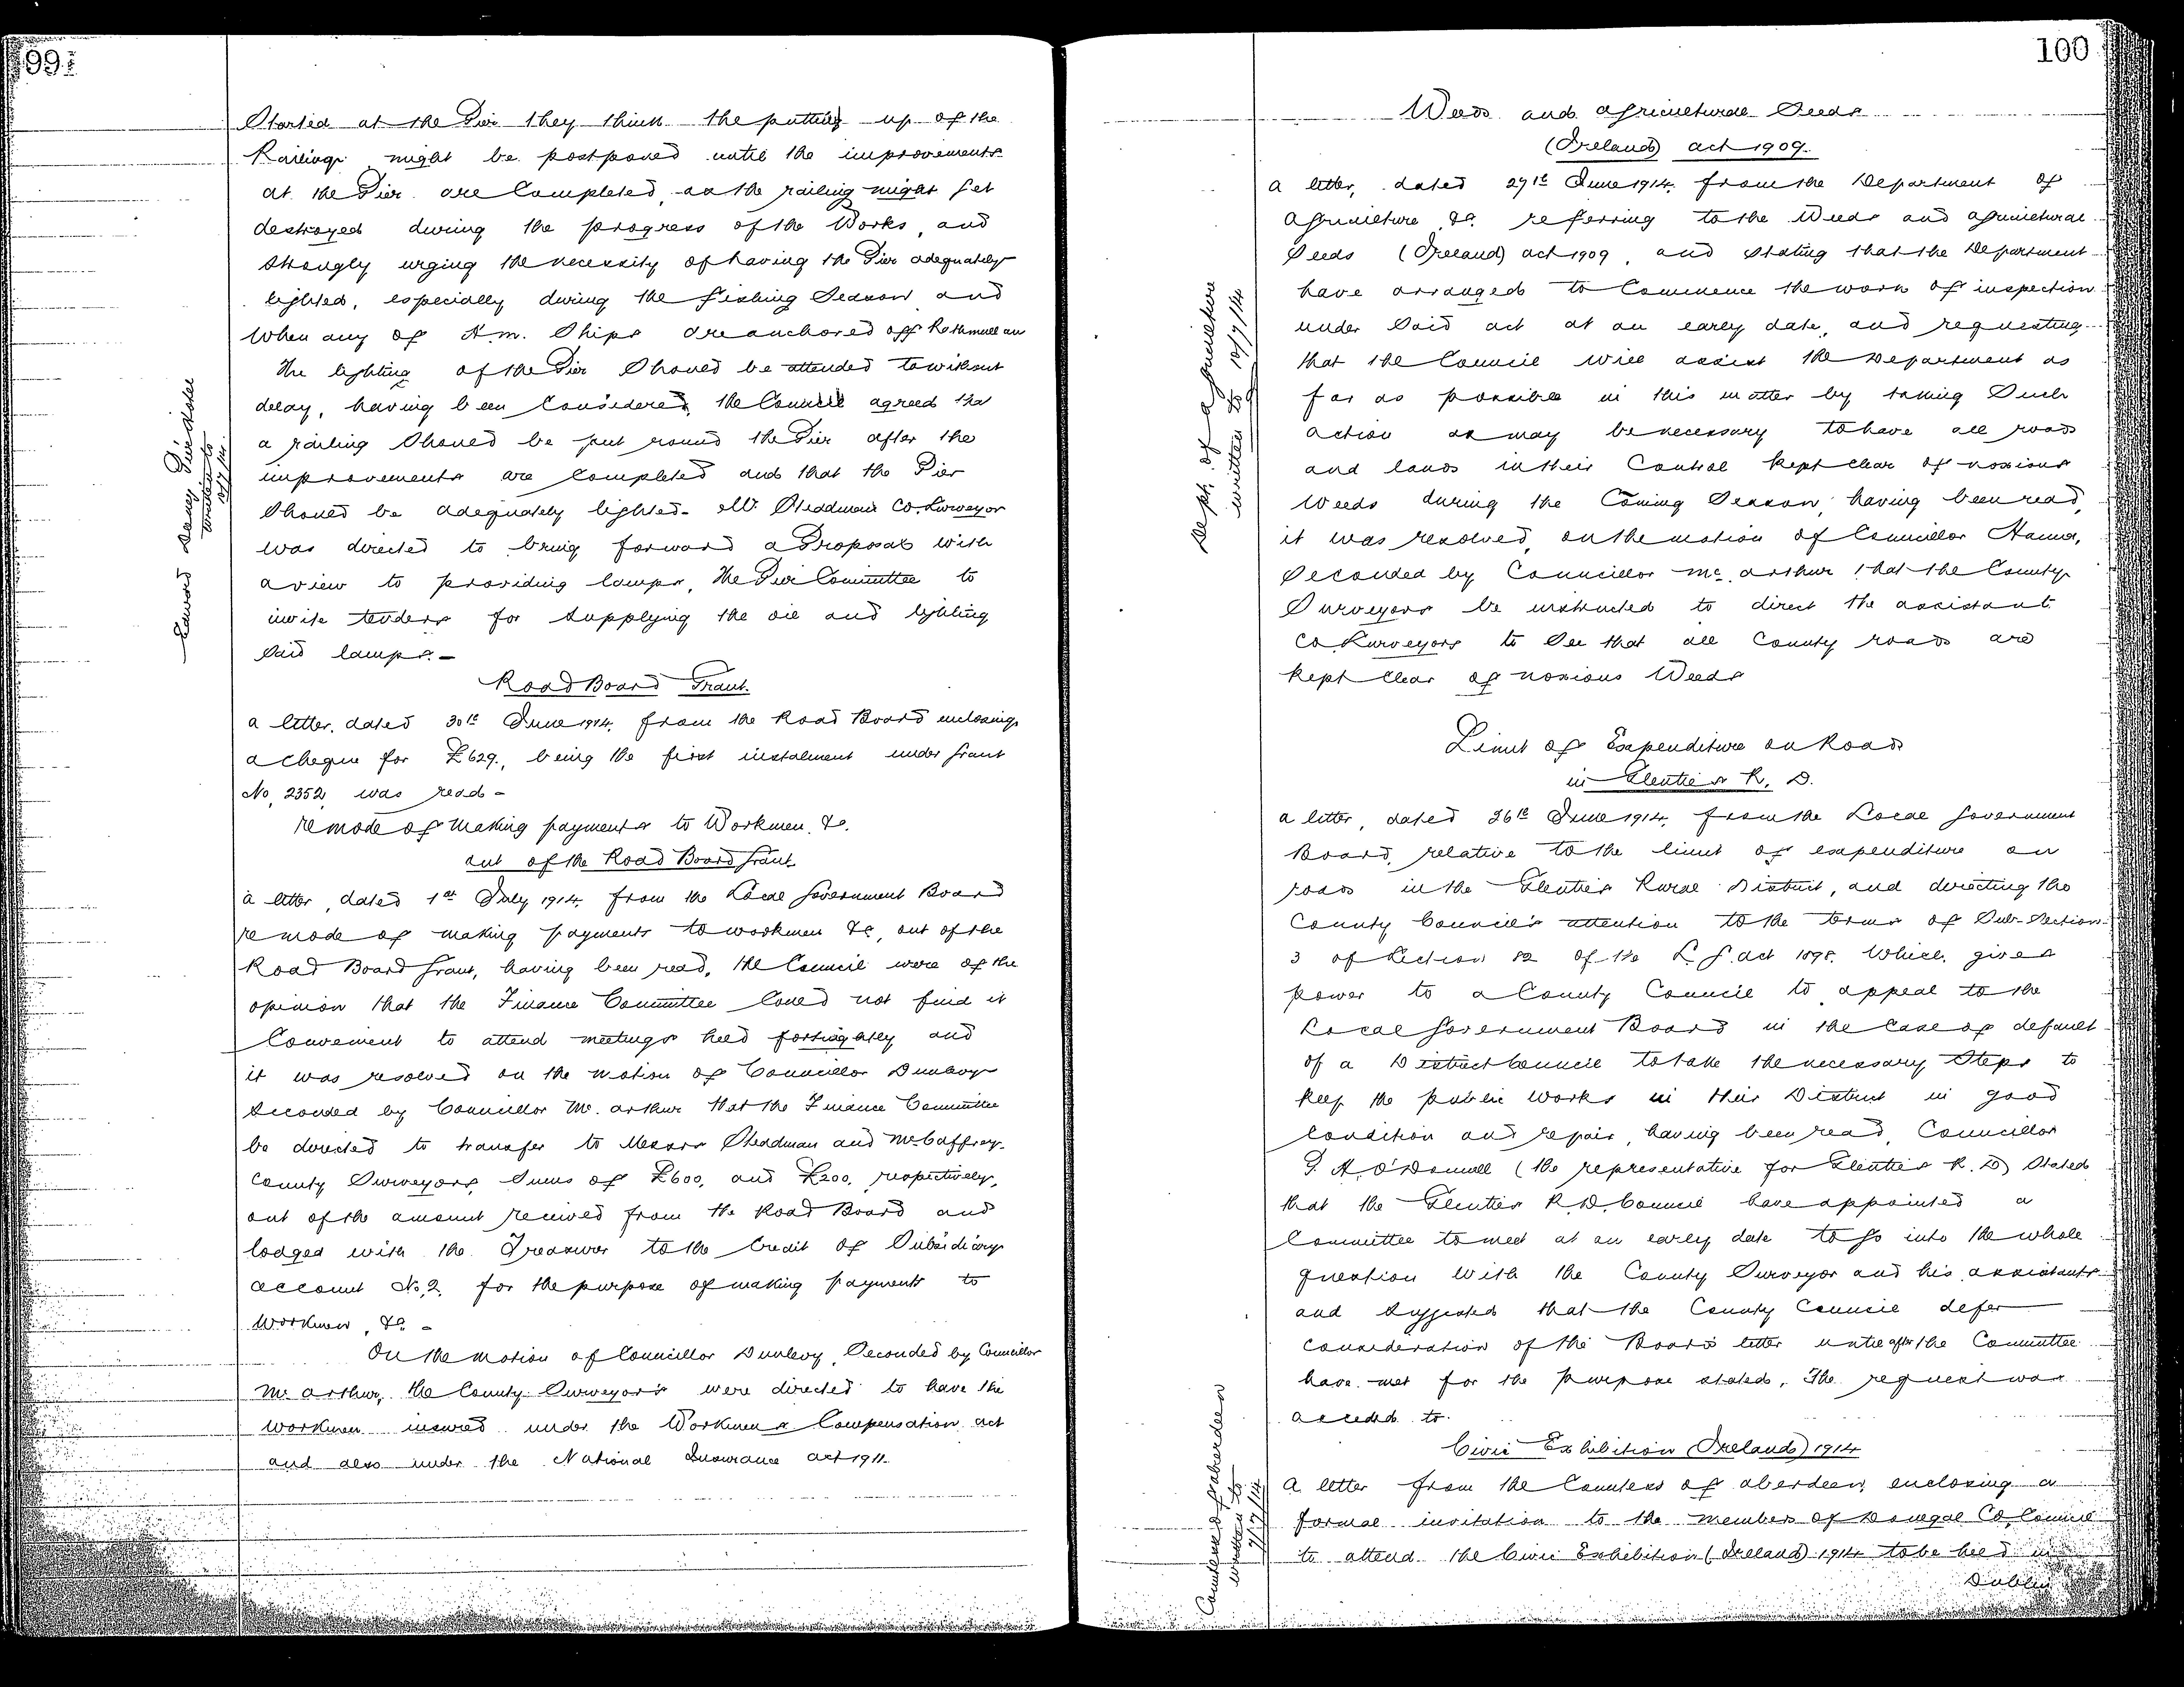 99
Started at the Pier they think the putting up of the
Railings might be postponed until the improvements
at the Pier are Completed, as the railing might get
destroyed during the progress of the Works, and
Strongly urging the necessity of having the Pier adequately
lighted, especially during the fishing Season and
When any of H.M. Ships are anchored off Rathmullan
The lighting of the Pier Should be attended to without
delay, having been Considered, the Council agreed that
a railing Should be put round the Pier after the
improvements are Completed and that the Pier
Should be adequately lighted. Mr. Steadman Co. Surveyor
was directed to bring forward a Proposal with
a view to providing lamps, the Pier Committee to
invite tenders for Supplying the oil and lighting
Said lamps.-
Edward Pier
written to
Road Board Grant.
a letter, dated 30th June 1914, from the Road Board enclosing
a cheque for £629., being the first instalment under Grant
No. 2352 was read -
re mode of Making payments to Workmen, &c.
out of the Road Board Grant
a letter, dated 1st July 1914, from the Local Government Board
re mode of making payments to workmen &c, out of the
Road Board Grant, having been read, the Council were of the
opinion that the Finance Committee Could not find it
Convenient to attend meetings held fortnightly and
it was resolved on the motion of Councillor Dunlevy
Seconded by Councillor Mc.Arthur that the Finance Committee
be directed to transfer to Messrs Steadman and McCaffrey
County Surveyors, Sums of £600, and £200, respectively,
out of the amount received from the Road Board and
lodged with the Treasurer to the Credit of Subsidiary
account No. 2. for the purpose of making payments to
Workmen, &c -
On the motion of Councillor Dunlevy, Seconded by Councillor
Mc Arthur, the County Surveyors were directed to have the
workmen insured under the Workmen's Compensation act
and also under the National Insurance act 1911.
100
Weeds and agricultural Seeds
(Ireland) act 1909.
a letter, dated 27th June 1914, from the Department of
Agriculture &c. referring to the Weeds and agricultural
Seeds (Ireland) act 1909, and Stating that the Department
have arranged to Commence the work of inspection
under Said act at an early date, and requesting
that the Council will assist the Department as
far as possible in this matter by taking Such
action as may be necessary to have all roads
and lands in their Control kept clear of noxious
Weeds during the Coming Season, having been read,
it was resolved, on the motion of Councillor Hanna,
Seconded by Councillor Mc.Arthur that the County
Surveyors be instructed to direct the assistant
Co. Surveyors to See that all County roads are
kept Clear of noxious Weeds
Dept. of Agriculture
written to 10/7/14
Limit of Expenditure on Roads
in Glenties R. D.
a letter, dated 26th June 1914, from the Local Government
Board, relative to the limit of expenditure on
roads in the Glenties Rural District, and directing the
County Council's attention to the terms of Sub-Section
3 of Section 82 of the L. G. act 1898. Which gives
power to a County Council to appeal to the
Local Government Board in the Case of default
of a District Council to take the necessary Steps to
keep the public works in their District in good
Condition and repair, having been read, Councillor
P. A. O'Donnell (the representative for Glenties R. D) Stated
that the Glenties R.D. Council have appointed a
Committee to meet at an early date to go into the whole
question with the County Surveyor and his assistants
and Suggested that the County Council defer
Consideration of the Board's letter until after the Committee
have met for the purpose stated. The request was
acceded to.
Civic Exhibition (Ireland) 1914
A letter from the Countess of Aberdeen enclosing a
formal invitation to the members of Donegal Co. Council
to attend the Civic Exhibition (Ireland) 1914 to be held in
Dublin
Countess of Aberdeen
written to